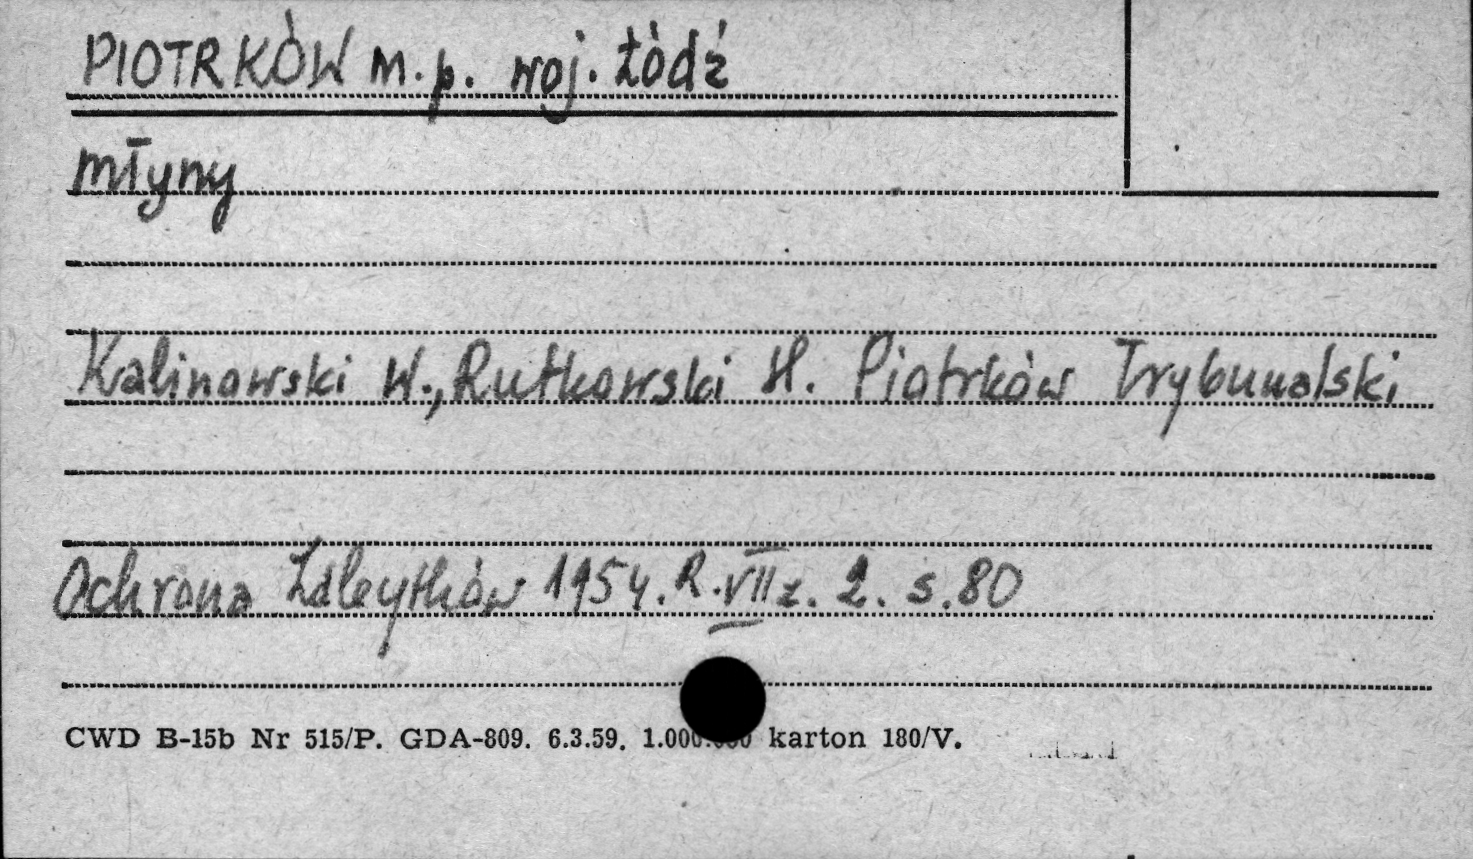 PIOTRKÓW m.p. woj. Łódź
młyny
Kalinowski W., Rutkowski H. Piotrków Trybunalski
Ochrona Zabytków 1954. R. VII z. 2. s. 80
CWD B-15b Nr 515/P. GDA-809. 6.3.59. 1.000.000 karton 180/V.